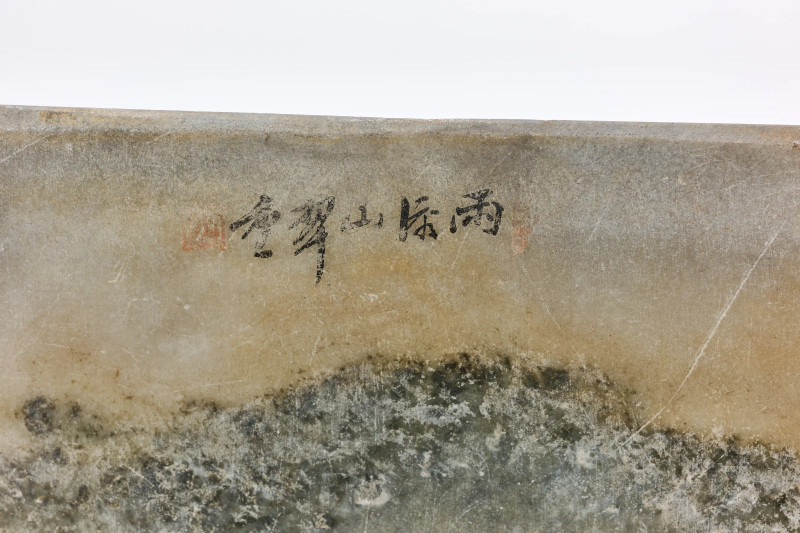 雨後山翠重